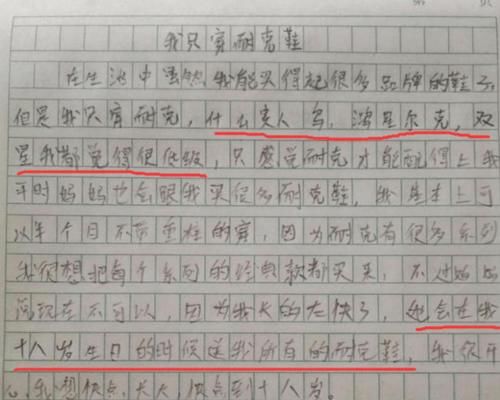 我只穿耐克鞋
在生活中虽然我能买得起很多品牌的鞋子,
但是我只穿耐克,什么安人鸟,鸿星尔克,双
星我都觉得很低级,只感觉耐克才能配得上我
平时妈妈也会跟我买很多耐克鞋,我基本上可
以半个月不带重样的穿,因为耐克有很多系列
我很想把每个系列的经典款都买来,不过妈妈
说现在不可以,因为我长的太快了,她会在我
十八岁生日的时候送我所有的耐克鞋,我很开
心,我想快点长大,快点到十八岁。